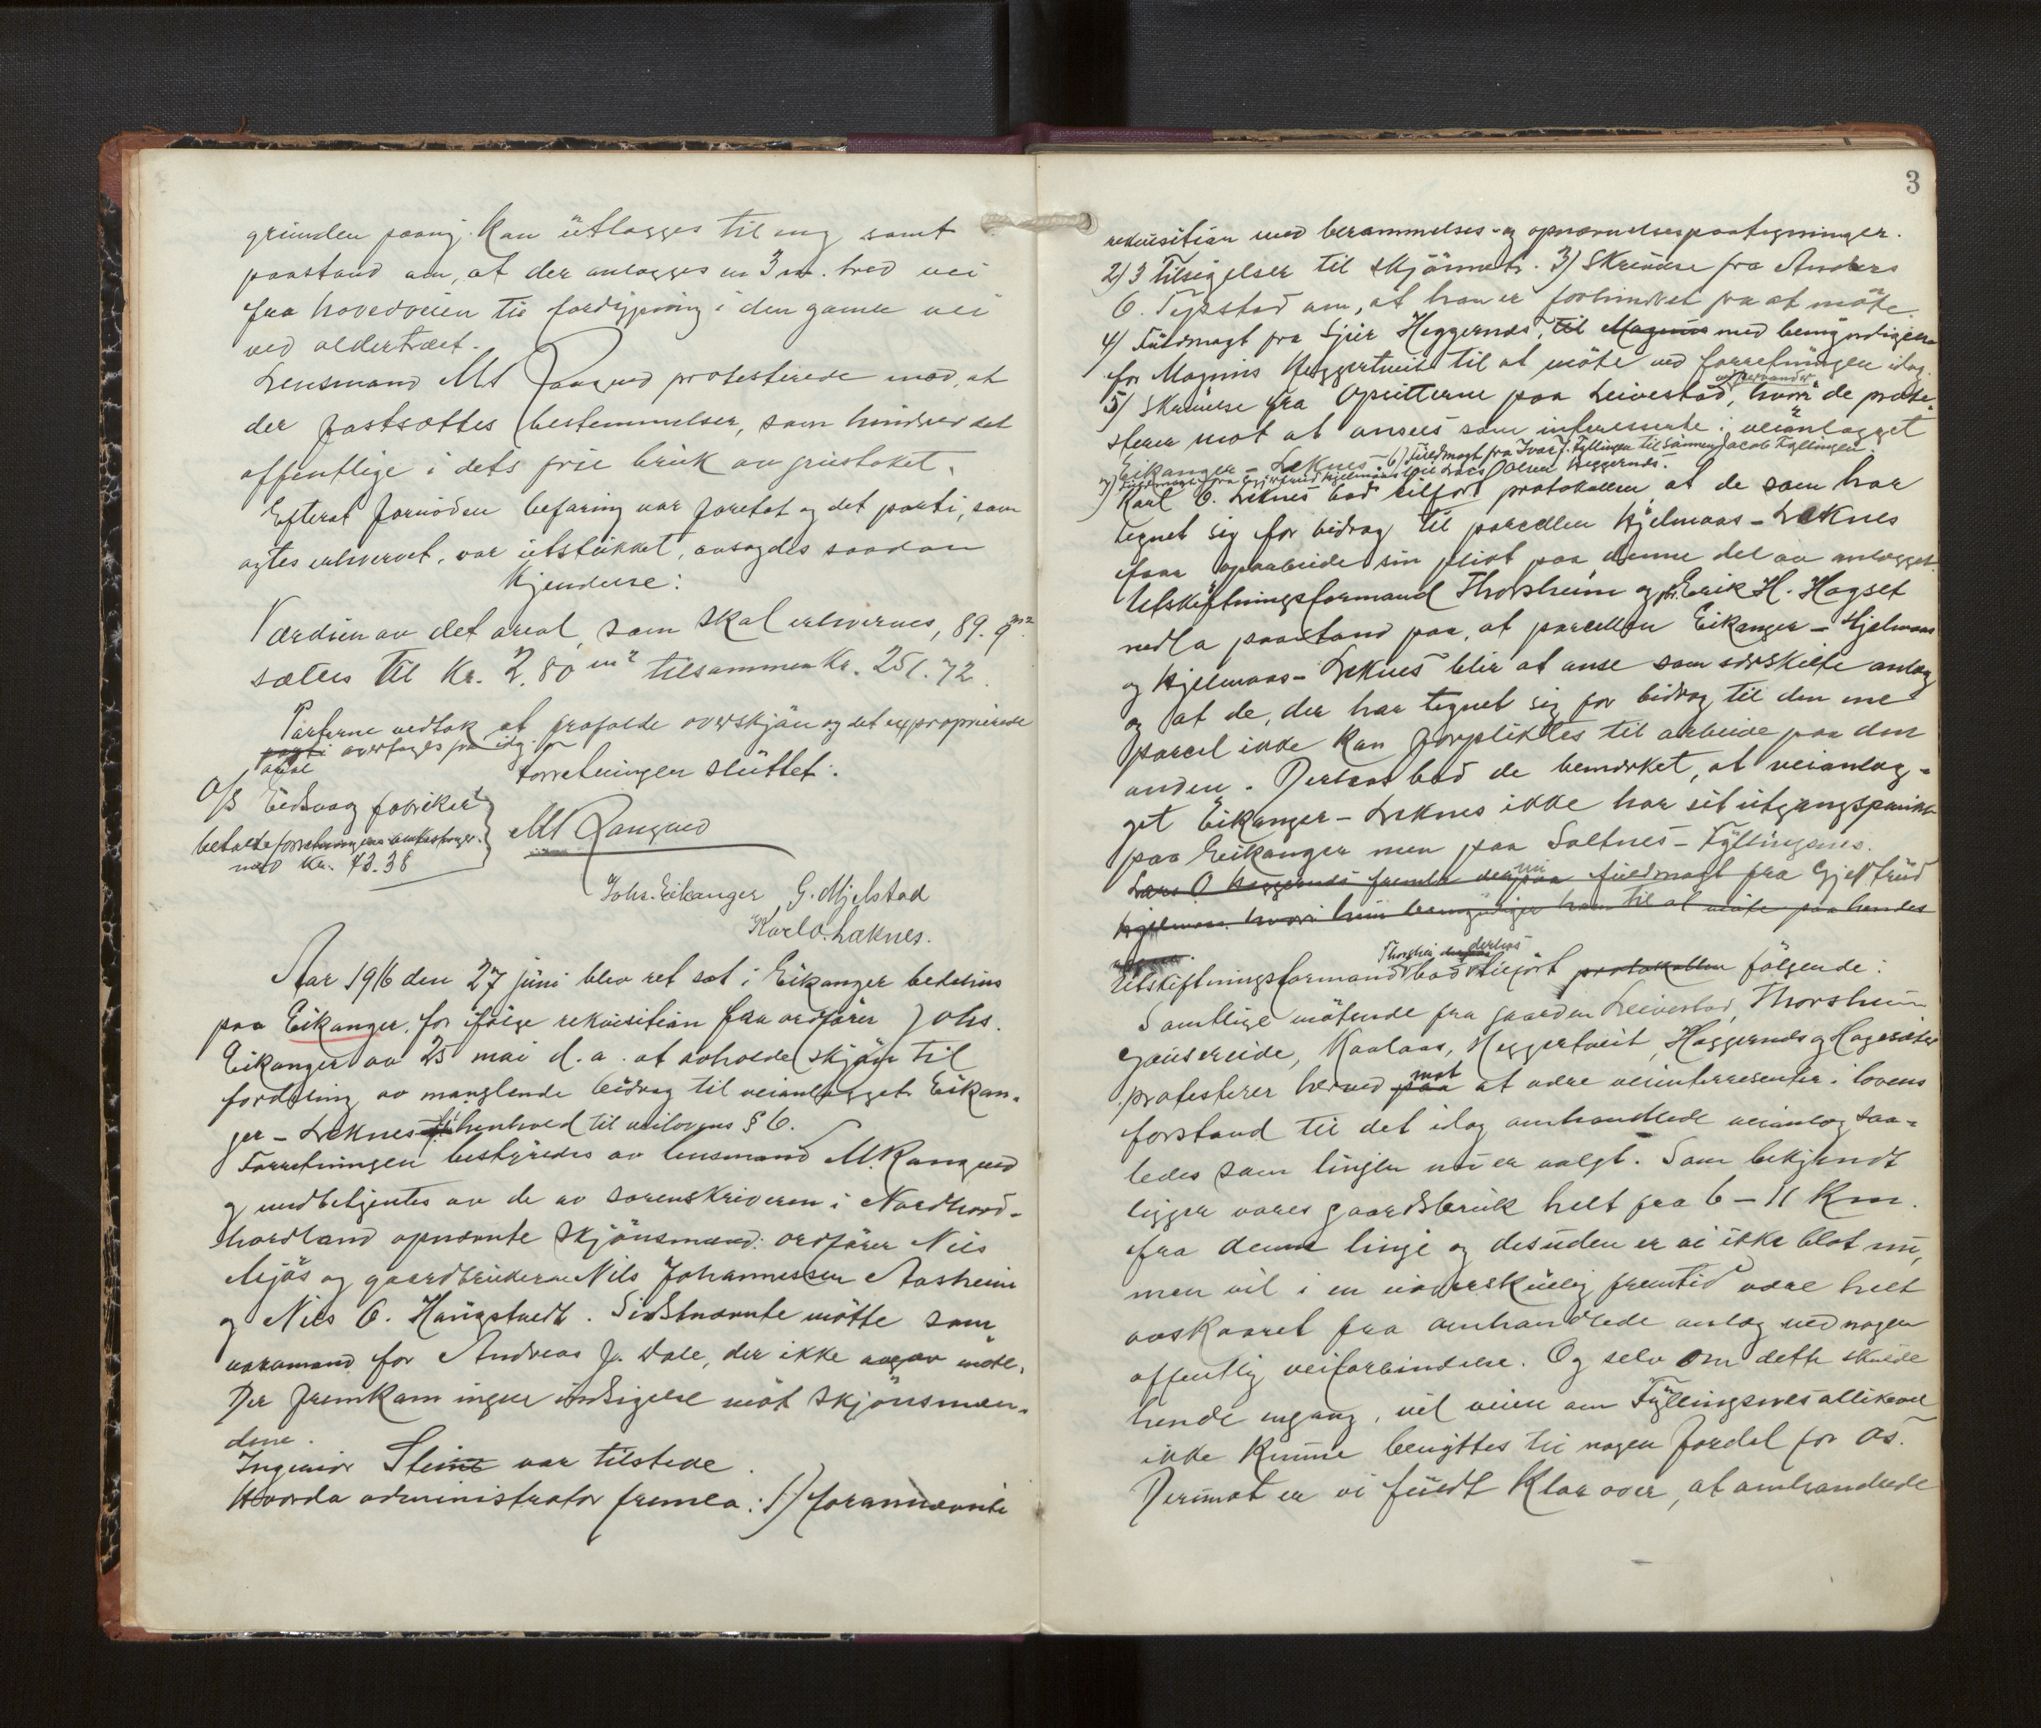 grunden paanÿ. Kan utlægges til eng samt
paastand om, at der anlægges en 3 m. bred vei
fra hovedveien til fordypning i den gamle vei
ved oldertræet.
Lensmand M Rangnes protesterede mod, at
der fastsættes bestemmelser, som hindrer det
offentlige i dets frie bruk av grustaket.
Efterat fornöden befaring var foretat og det parti, som
agtes erhvervet, var utstukket, avsagdes saadan
Kjendelse:
Værdien av det areal, som skal erhverves, 89.9 m²
sættes til Kr. 2,80 m² tilsammen Kr. 251.72.
Parterne vedtok at frafalde overskjön og det exproprierede
parti overtages fra idag.
areal
Forretningen sluttet.
A/S Eidsvaag fabriker
betalte forretningens omkostninger
med Kr. 73.38
M Rangnes
Johs. Eikanger G. Mjelstad
Karl O. Læknes.
Aar 1916 den 27 juni blev ret sat i Eikanger bedehus
paa Eikanger, for ifölge rekvisition fra ordförer Johs.
Eikanger av 25 mai d. a. at avholde skjön til
fordeling av manglende bidrag til veianlægget Eikan-
ger – Leknes i henhold til veilovens § 6.
Forretningen bestyredes av lensmand M. Rangnes
og medbetjentes av de av sorenskriveren i Nordhord-
hordland opnævnte skjönsmænd: ordförer Nils
Mjös og gaardbrukerne Nils Johannessen Aasheim
og Nils O. Haugstvedt. Sidstnævnte mötte som
varamand for Andreas J. Dale, der ikke avgav möte.
Der fremkom ingen indsigelse mot skjönsmæn-
dene.
Ingeniör Stine var tilstede.
Hvorda administrator fremla: 1) forannævnte
3
rekvisition med berammelses- og opnævnelsespaategninger.
2) 3 Tilsigelser til skjönnet. 3) Skrivelse fra Anders
O. Tepstad om, at han er forhindret fra at möte.
4) Fuldmagt fra Sjur Heggernæs, til Magnus med bemyndigelse
for Magnus Heggertveit til at möte ved forretningen idag.
5) Skrivelse fra Opsitterne paa Leivestad, hvori de prote-
sterer mot at ansees som interesserte i veianlægget
Eikanger – Leknes. 6) Fuldmagt fra Ivar J. Fyllingen til sönnen Jacob Fyllingen.
7) Fuldmagt fra Gjertrud Hjelmaas til Lars Olsen Heggernæs.
Karl O. Leknes bad tilfört protokollen, at de som har
tegnet sig for bidrag til parcellen Hjelmaas – Leknes
faar oparbeide sin plikt paa denne del av anlægget.
Utskiftningsformand Thorsheim og pr. Erik H. Hagset
nedla paastand paa, at parcellen Eikanger – Hjelmaas
og Hjelmaas – Leknes blir at anse som særskilte anlæg
og at de, der har tegnet sig for bidrag til den ene
parcel ikke kan forpliktes til arbeide paa den
anden. Derhos bad de bemerket, at veianlæg-
get Eikanger – Leknes ikke har sit utgangspunkt
paa Eikanger men paa Saltnes – Fyllingsnes.
Lars O Heggernæs fremla derpaa fuldmagt fra Gjertrud
Hjelmaas hvori hun bemyndiger ham til at möte paa hendes
Utskiftningsformand Thorsheim bad derhos tilfört protokollen fölgende:
Samtlige mötende fra gaardene Leivestad, Thorsheim
Gausereide, Kaalaas, Heggertveit, Heggernæs og Hagesæter
protesterer herved mot at være veiinteressenter i lovens
forstand til det idag omhandlede veianlæg saa-
ledes som linjen nu er valgt. Som bekjendt
ligger vores gaardsbruk helt fra 6 – 11 Km.
fra denne linje og desuden er vi ikke blot nu,
men vil i en uoverskuelig fremtid være helt
avskaaret fra omhandlede anlæg ved nogen
offentlig veiforbindelse. Og selv om dette skulde
hende engang, vil veien om Fyllingsnes allikevel
ikke kunne benyttes til nogen fordel for os.
Derimot er vi fuldt klar over, at omhandlede